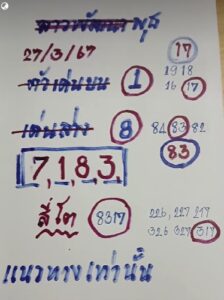 ลาวพัฒนา พุธ
27/3/67 17
ตัวเด่นบน 1 1918
16 17
เด่นล่าง 8 84 83 82
83
7,1,8,3,
สี่โต 8317 226, 227 217
326 327 317
แนวทางเท่านั้น